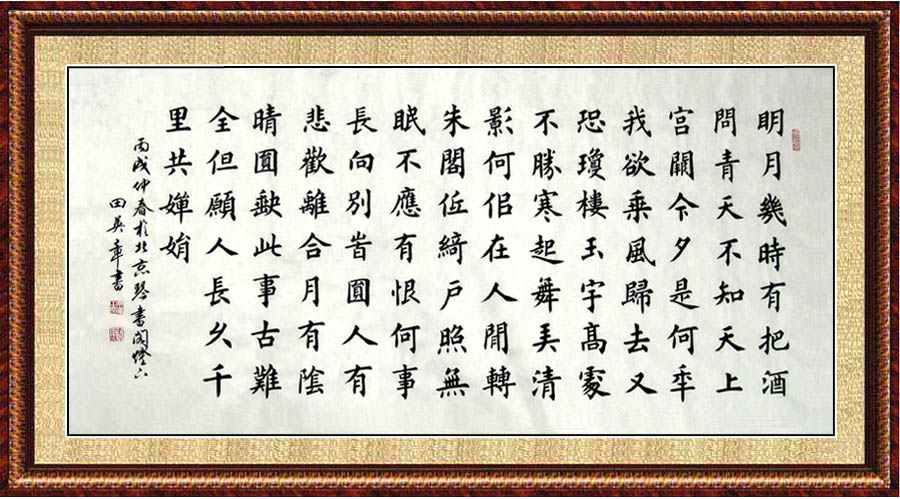 明月幾時有把酒
問青天不知天上
宮闕今夕是何年
我欲乘風歸去又
恐瓊樓玉宇高處
不勝寒起舞弄清
影何似在人間轉
朱閣低綺戶照無
眠不應有恨何事
長向別時圓人有
悲歡離合月有陰
晴圓缺此事古難
全但願人長久千
里共嬋娟
丙戌仲春於北京琴書閣燈下
田英章書